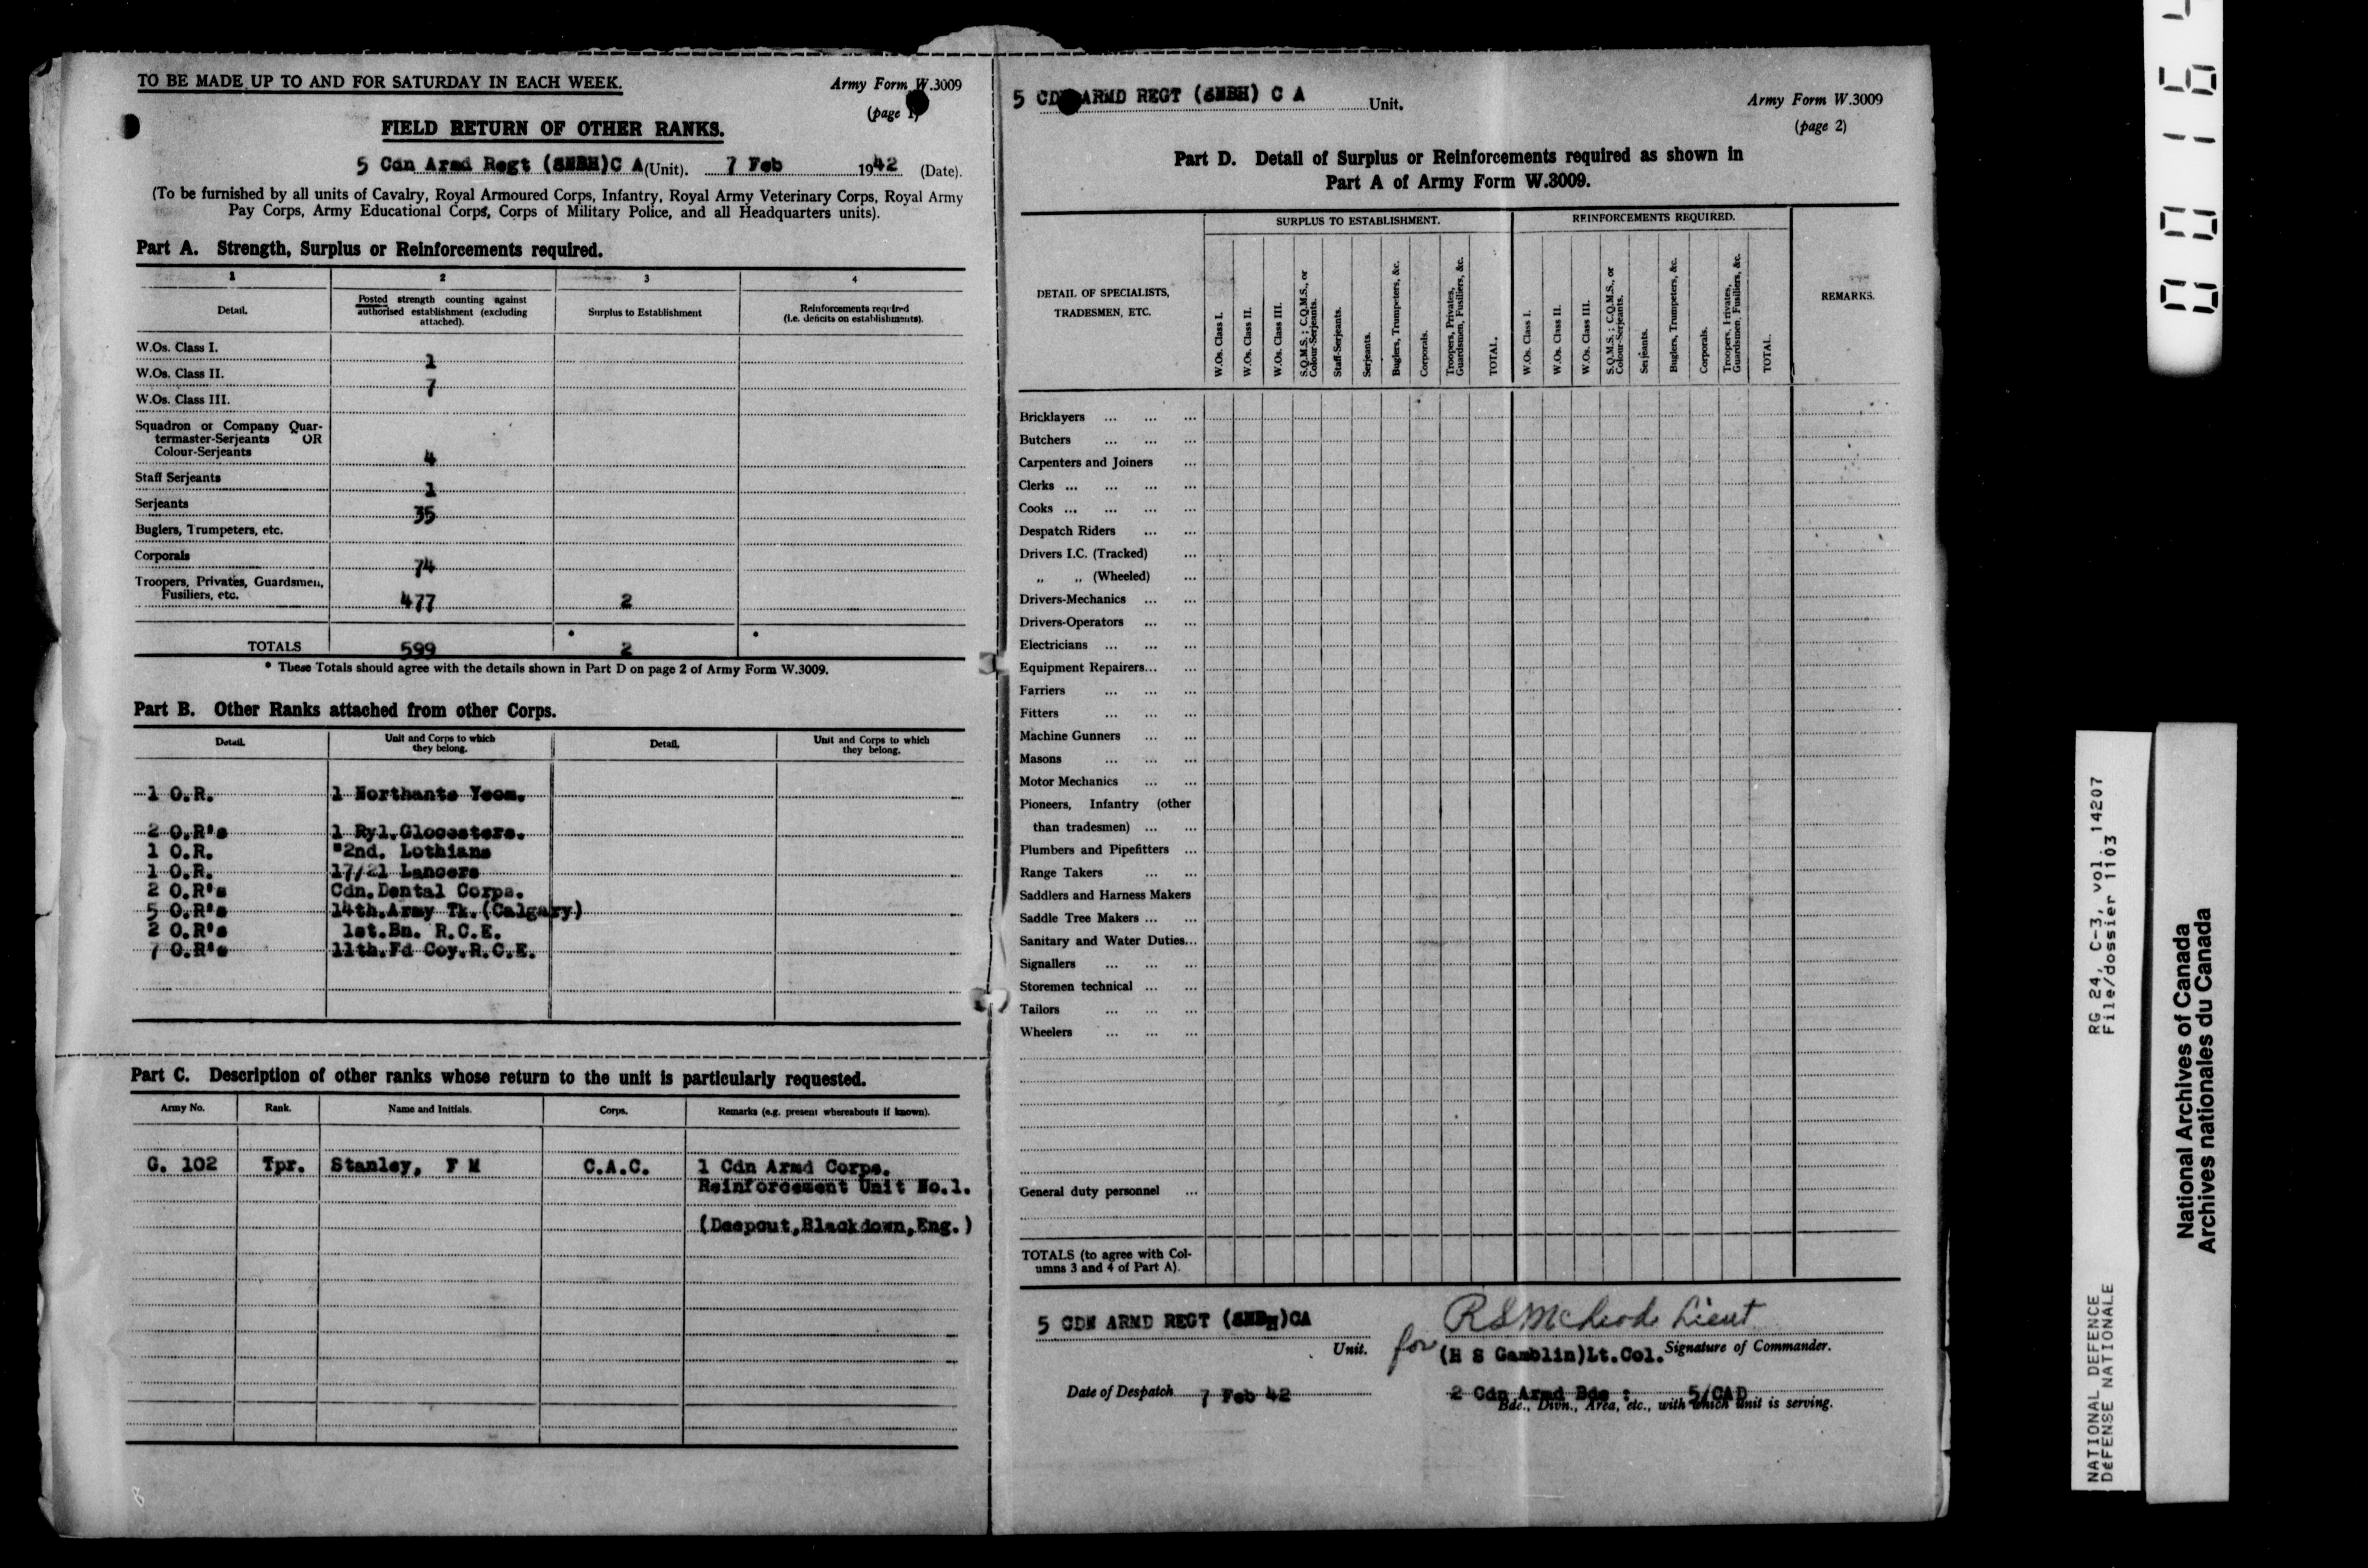 TO BE MADE UP TO AND FOR SATURDAY IN EACH WEEK.
Army Form W.3009
(page 1)
FIELD RETURN OF OTHER RANKS.
5 Cdn Armd Regt (8NBH)C A (Unit). 7 Feb 1942 (Date).
(To be furnished by all units of Cavalry, Royal Armoured Corps, Infantry, Royal Army Veterinary Corps, Royal Army
Pay Corps, Army Educational Corps, Corps of Military Police, and all Headquarters units).
Part A. Strength, Surplus or Reinforcements required.
1 2 3 4
Detail.
Posted strength counting against
authorised establishment (excluding
attached).
Surplus to Establishment
Reinforcements required
(i.e. deficits on establishments).
W.Os. Class I. 1
W.Os. Class II. 7
W.Os. Class III.
Squadron or Company Quar-
termaster-Serjeants OR
Colour-Serjeants 4
Staff Serjeants 1
Serjeants 35
Buglers, Trumpeters, etc.
Corporals 74
Troopers, Privates, Guardsmen,
Fusiliers, etc. 477 2
TOTALS 599 * 2 *
* These Totals should agree with the details shown in Part D on page 2 of Army Form W.3009.
Part B. Other Ranks attached from other Corps.
Detail.
Unit and Corps to which
they belong.
Detail.
Unit and Corps to which
they belong.
1 O.R. 1 Northants Yeom.
2 O.R's 1 Ryl.Glocesters.
1 O.R. "2nd. Lothians
1 O.R. 17/21 Lancers
2 O.R's Cdn.Dental Corps.
5 O.R's 14th.Army Tk.(Calgary)
2 O.R's 1st.Bn. R.C.E.
7 O.R's 11th.Fd Coy.R.C.E.
Part C. Description of other ranks whose return to the unit is particularly requested.
Army No. Rank. Name and Initials. Corps. Remarks (e.g. present whereabouts if known).
G. 102 Tpr. Stanley, F M C.A.C. 1 Cdn Armd Corps.
Reinforcement Unit No.1.
(Deepcut,Blackdown,Eng.)
5 CDN ARMD REGT (8NBH) C A Unit.
Army Form W.3009
(page 2)
Part D. Detail of Surplus or Reinforcements required as shown in
Part A of Army Form W.3009.
DETAIL OF SPECIALISTS,
TRADESMEN, ETC.
SURPLUS TO ESTABLISHMENT.
W.Os. Class I.
W.Os. Class II.
W.Os. Class III.
S.Q.M.S. ; C.Q.M.S., or
Colour-Serjeants.
Staff-Serjeants.
Serjeants.
Buglers, Trumpeters, &c.
Corporals.
Troopers, Privates,
Guardsmen, Fusiliers, &c.
TOTAL.
REINFORCEMENTS REQUIRED.
W.Os. Class I.
W.Os. Class II.
W.Os. Class III.
S.Q.M.S. ; C.Q.M.S., or
Colour-Serjeants.
Serjeants.
Buglers, Trumpeters, &c.
Corporals.
Troopers, Privates,
Guardsmen, Fusiliers, &c.
TOTAL.
REMARKS.
Bricklayers ... ... ...
Butchers ... ... ...
Carpenters and Joiners ...
Clerks ... ... ... ...
Cooks ... ... ... ...
Despatch Riders ... ...
Drivers I.C. (Tracked) ...
,, ,, (Wheeled) ...
Drivers-Mechanics ... ...
Drivers-Operators ... ...
Electricians ... ... ...
Equipment Repairers... ...
Farriers ... ... ...
Fitters ... ... ...
Machine Gunners ... ...
Masons ... ... ...
Motor Mechanics ... ...
Pioneers, Infantry (other
than tradesmen) ... ...
Plumbers and Pipefitters ...
Range Takers ... ...
Saddlers and Harness Makers
Saddle Tree Makers ... ...
Sanitary and Water Duties...
Signallers ... ... ...
Storemen technical ... ...
Tailors ... ... ...
Wheelers ... ... ...
General duty personnel ...
TOTALS (to agree with Col-
umns 3 and 4 of Part A).
5 CDN ARMD REGT (8NBH)CA
Unit.
RSMcLeod Lieut
for (H S Gamblin)Lt.Col. Signature of Commander.
Date of Despatch 7 Feb 42
2 Cdn Armd Bde : 5/CAD
Bde., Divn., Area, etc., with which unit is serving.
RG 24, C-3, vol. 14207
File/dossier 1103
NATIONAL DEFENCE
DÉFENSE NATIONALE
National Archives of Canada
Archives nationales du Canada